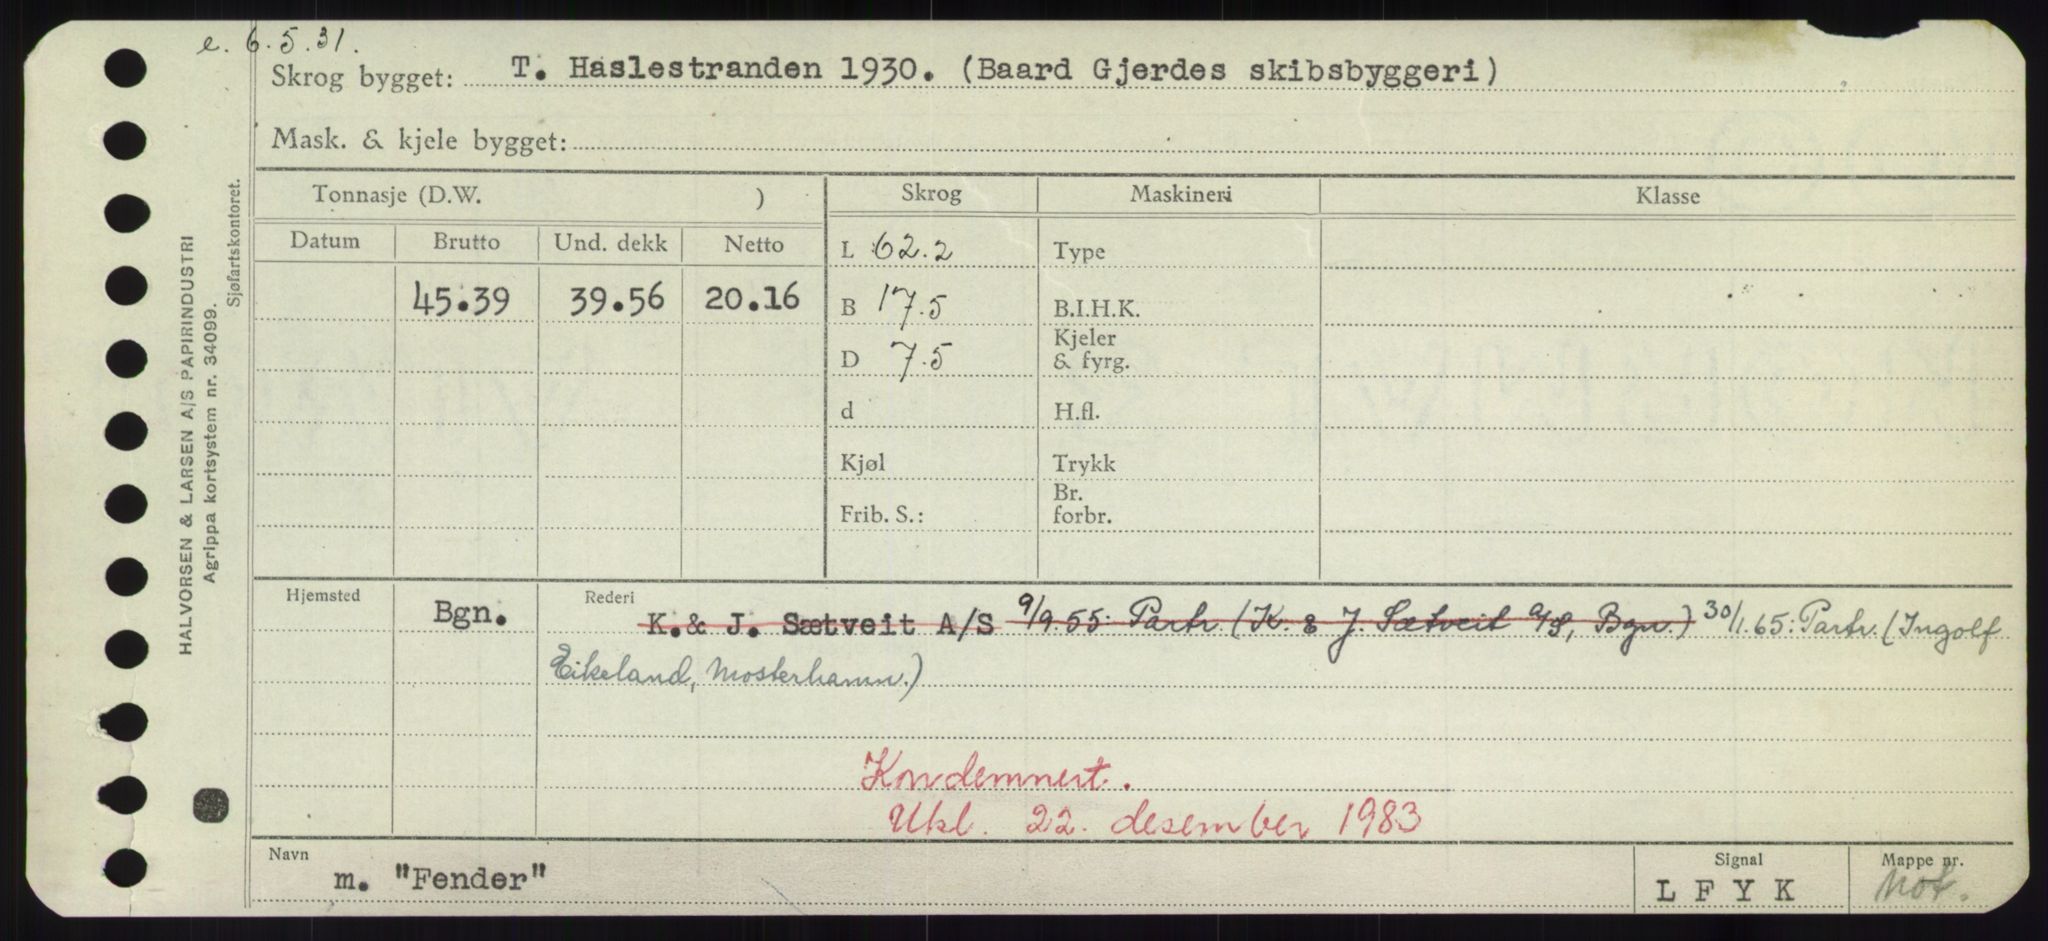 e. 6.5.31.
Skrog bygget: T. Haslestranden 1930. (Baard Gjerdes skibsbyggeri)
Mask. & kjele bygget:
Tonnasje (D.W. ) Skrog Maskineri Klasse
Datum Brutto Und. dekk Netto L 62.2 Type
45.39 39.56 20.16 B 17.5 B.I.H.K.
D 7.5 Kjeler & fyrg.
d H.fl.
Kjøl Trykk
Frib. S.: Br. forbr.
Hjemsted Bgn. Rederi K.& J. Sætveit A/S 9/9.55: Partr (K. & J. Sætveit A/S, Bgn.) 30/1.65: Partr. (Ingolf
Eikeland, Mosterhamn.)
Kondemnert.
Utkl. 22. desember 1983
Navn m. "Fender" Signal LFYK Mappe nr. Not.
HALVORSEN & LARSEN A/S PAPIRINDUSTRI
Agrippa kortsystem nr. 34099.
Sjøfartskontoret.